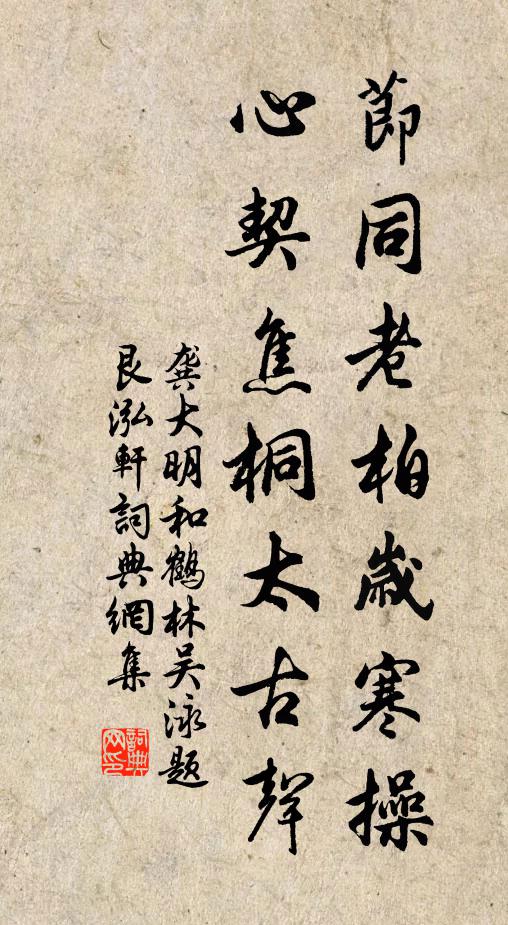 節同老柏歲寒操
心契焦桐太古聲
龔大明和鶴林吴泳題
艮泓軒詞典網集
詞典网印